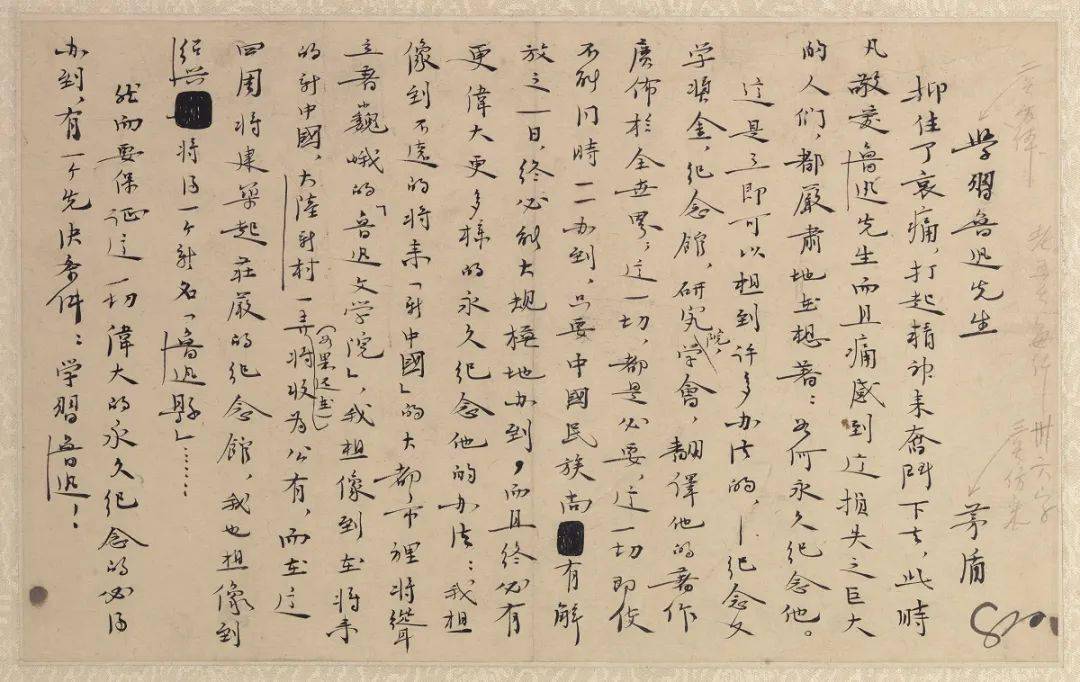 学習魯迅先生
茅盾
抑住了哀痛,打起精神来奋鬥下去,此時
凡敬爱魯迅先生而且痛感到这損失之巨大
的人们,都嚴肅地在想著:如何永久纪念他。
这是立即可以想到许多办法的,——纪念文
学奖金,纪念館,研究院,学會,翻譯他的著作
廣佈於全世界;这一切,都是必要,这一切即使
不能同時一一办到,只要中國民族尚有解
放之一日,终必能大规模地办到,而且终必有
更偉大更多樣的永久纪念他的办法:我想
像到不遠的将来「新中國」的大都市裡将聳
立着巍峨的「魯迅文学院」,我想像到在将来
的新中國,大陸新村一弄(如果还在)将收为公有,而在这
四周将建築起莊嚴的纪念館,我也想像到
绍兴将得一个新名「魯迅縣」……
然而要保证这一切偉大的永久纪念的必得
办到,有一个先决条件:学習魯迅!